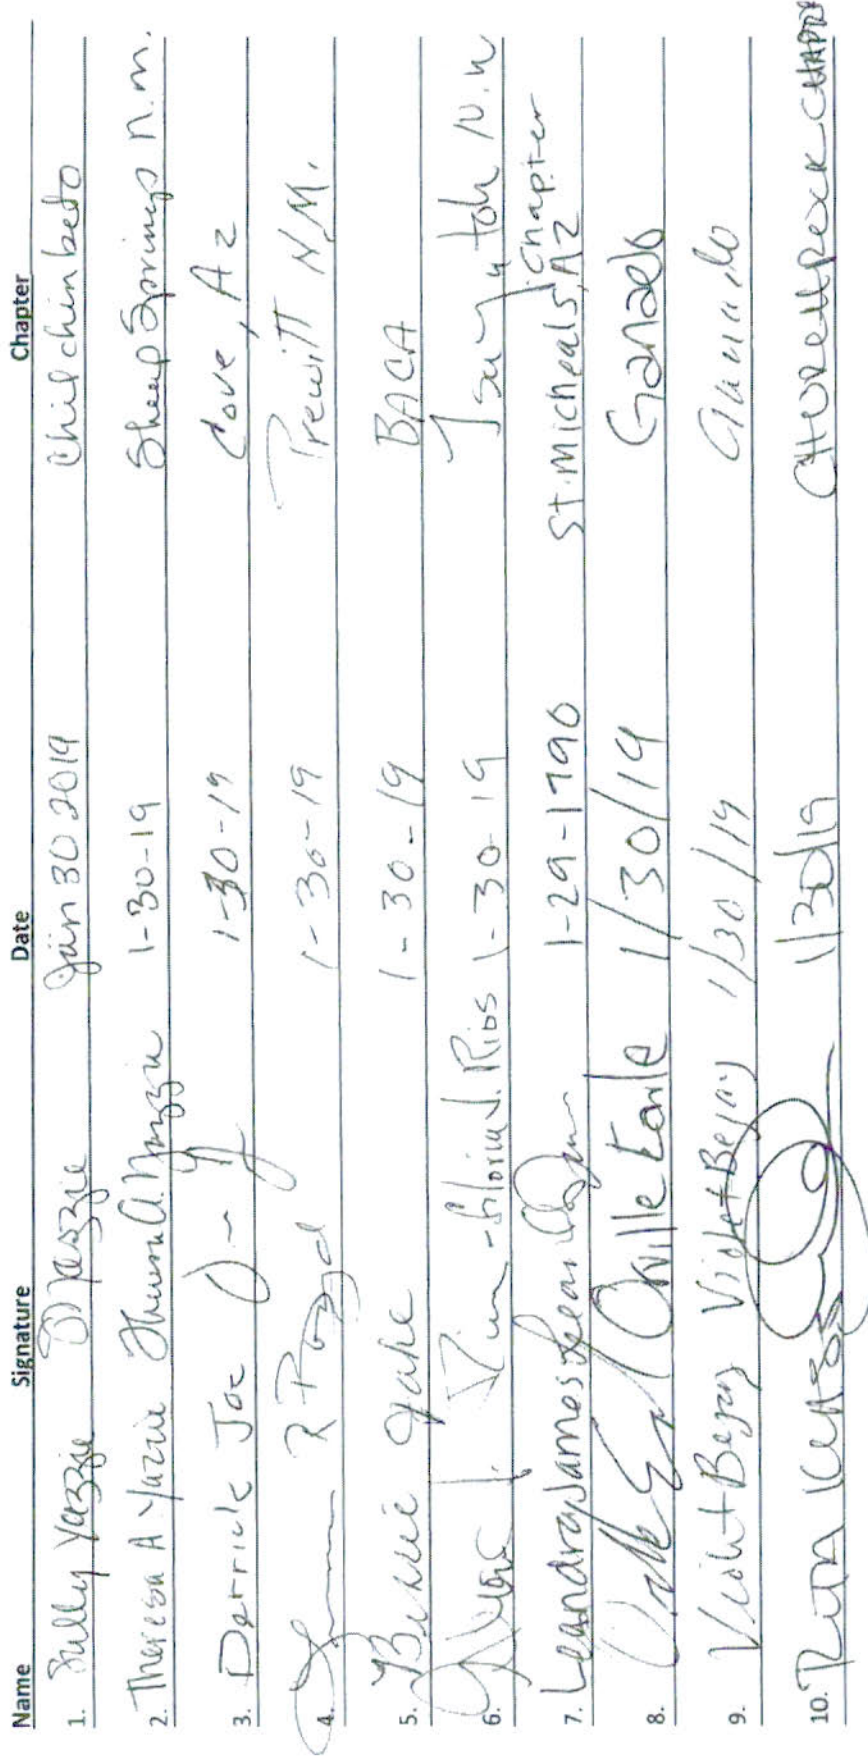 Name Signature Date Chapter
1. Sully Yazzie Yazzie Jan 30 2019 Chilchinbeto
2. Theresa A. Yazzie Theresa A. Yazzie 1-30-19 Sheep Springs N.M.
3. Derrick Joe 1-30-19 Cove, Az
4. 1-30-19 Prewitt N.M.
5. Jake 1-30-19 BACA
6. Gloria J. Rios 1-30-19
7. Leandra James 1-29-1990 St. Micheals, AZ Chapter
8. / Orville Earle 1/30/19 Ganado
9. Violet Begay Violet Begay 1/30/19 Ganado
10. 1/30/19 CHURCHROCK CHAPTER